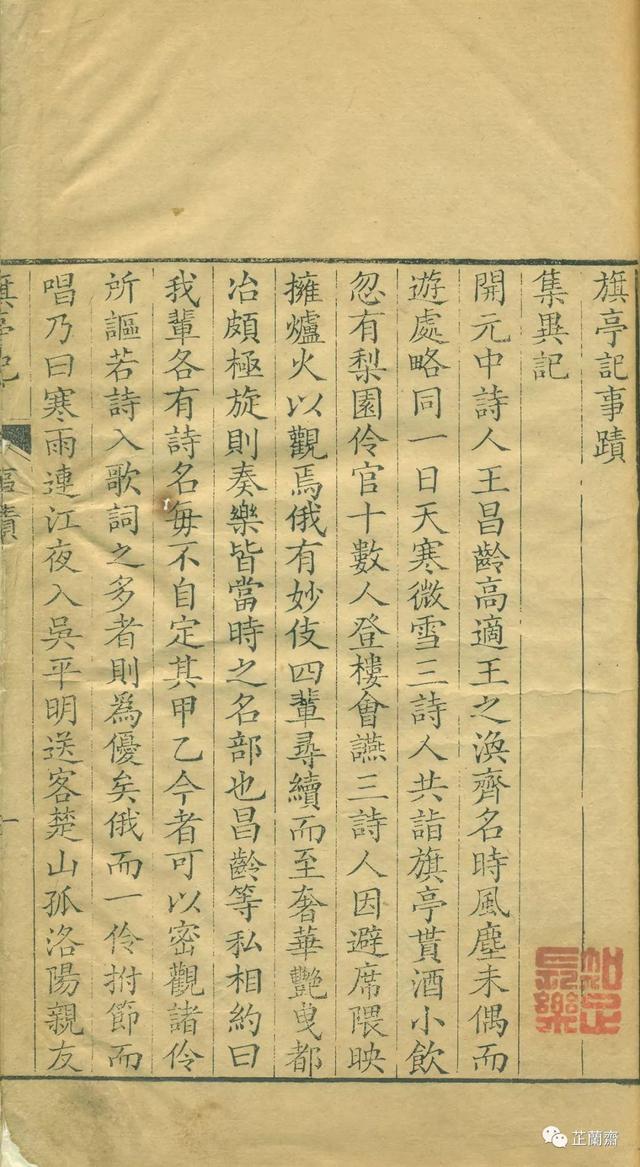 旗亭記事蹟
集異記
開元中詩人王昌齡高適王之渙齊名時風塵未偶而
遊處略同一日天寒微雪三詩人共詣旗亭貰酒小飲
忽有梨園伶官十數人登樓會讌三詩人因避席隈映
擁爐火以觀焉俄有妙伎四輩尋續而至奢華艷曳都
冶頗極旋則奏樂皆當時之名部也昌齡等私相約曰
我輩各有詩名每不自定其甲乙今者可以密觀諸伶
所謳若詩入歌詞之多者則為優矣俄而一伶拊節而
唱乃曰寒雨連江夜入吳平明送客楚山孤洛陽親友
旗亭記
一
知足長樂
芷蘭齋